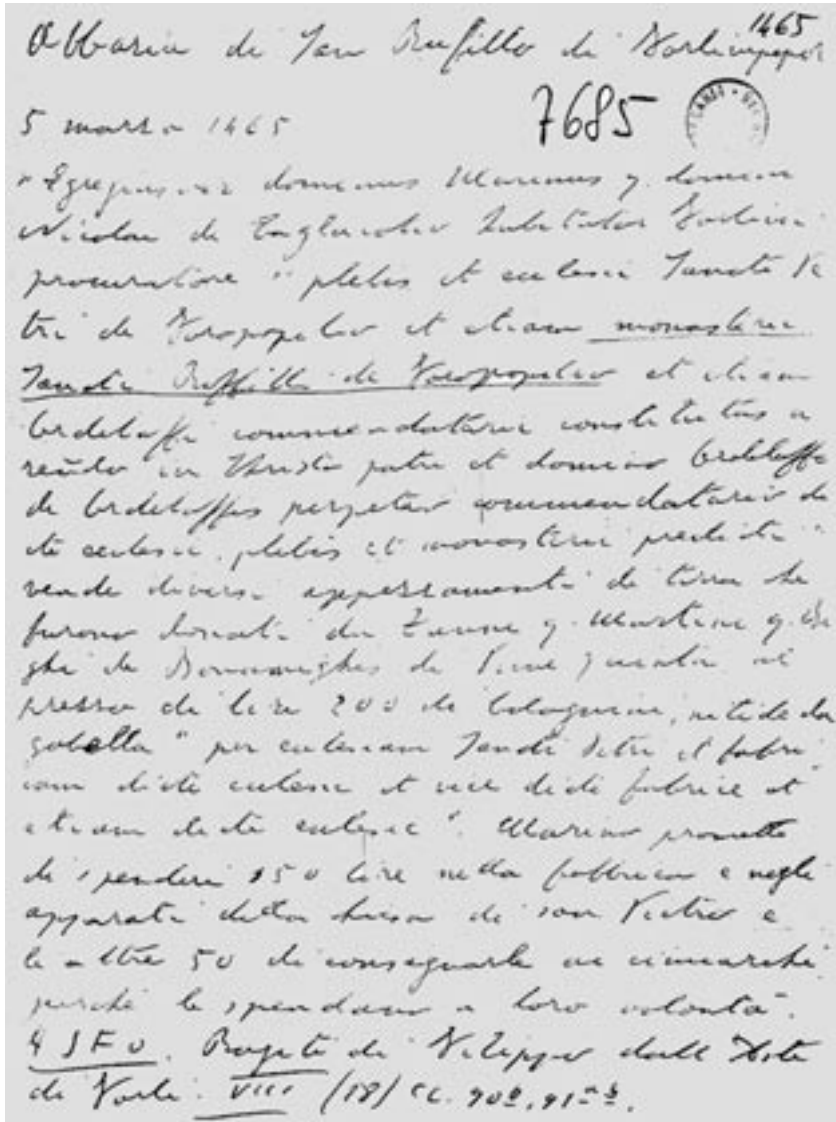 1465
Abbazia di San Ruffillo di Forlimpopoli
7685
5 marzo 1465
"Egregius vir dominus Marinus q. domini
Nicolai de habitator Forlivii
procuratore "plebis et ecclesie Sancti Pe
tri de Foropopulio et etiam monasterii
Sancti Ruffilli de Foropopulio et etiam
Ordelaffi commendatarii constitutus a
reũdo in Christo patre et domino Ordelaffo
de Ordelaffis perpetuo commendatario dic
te ecclesie, plebis et monasterii predicti"
vende diversi appezzamenti di terra che
furono donati da q. Martini q.
ghi de de al
prezzo di lire 200 di bolognini, nitide da
gabella "pro ecclesiam Sancti Petri et fabri
cam dicte ecclesie et vice dicte fabrice et
etiam dicte ecclesie". Marino promette
di spendere 150 lire nella fabbrica e negli
apparati della chiesa di san Pietro e
le altre 50 di consegnarle ai
perché le spendano a loro volontà.
ASFo. Rogiti di Filippo dall'Aste
di Forlì. VIII (18) cc. 90ª, 91ª b.